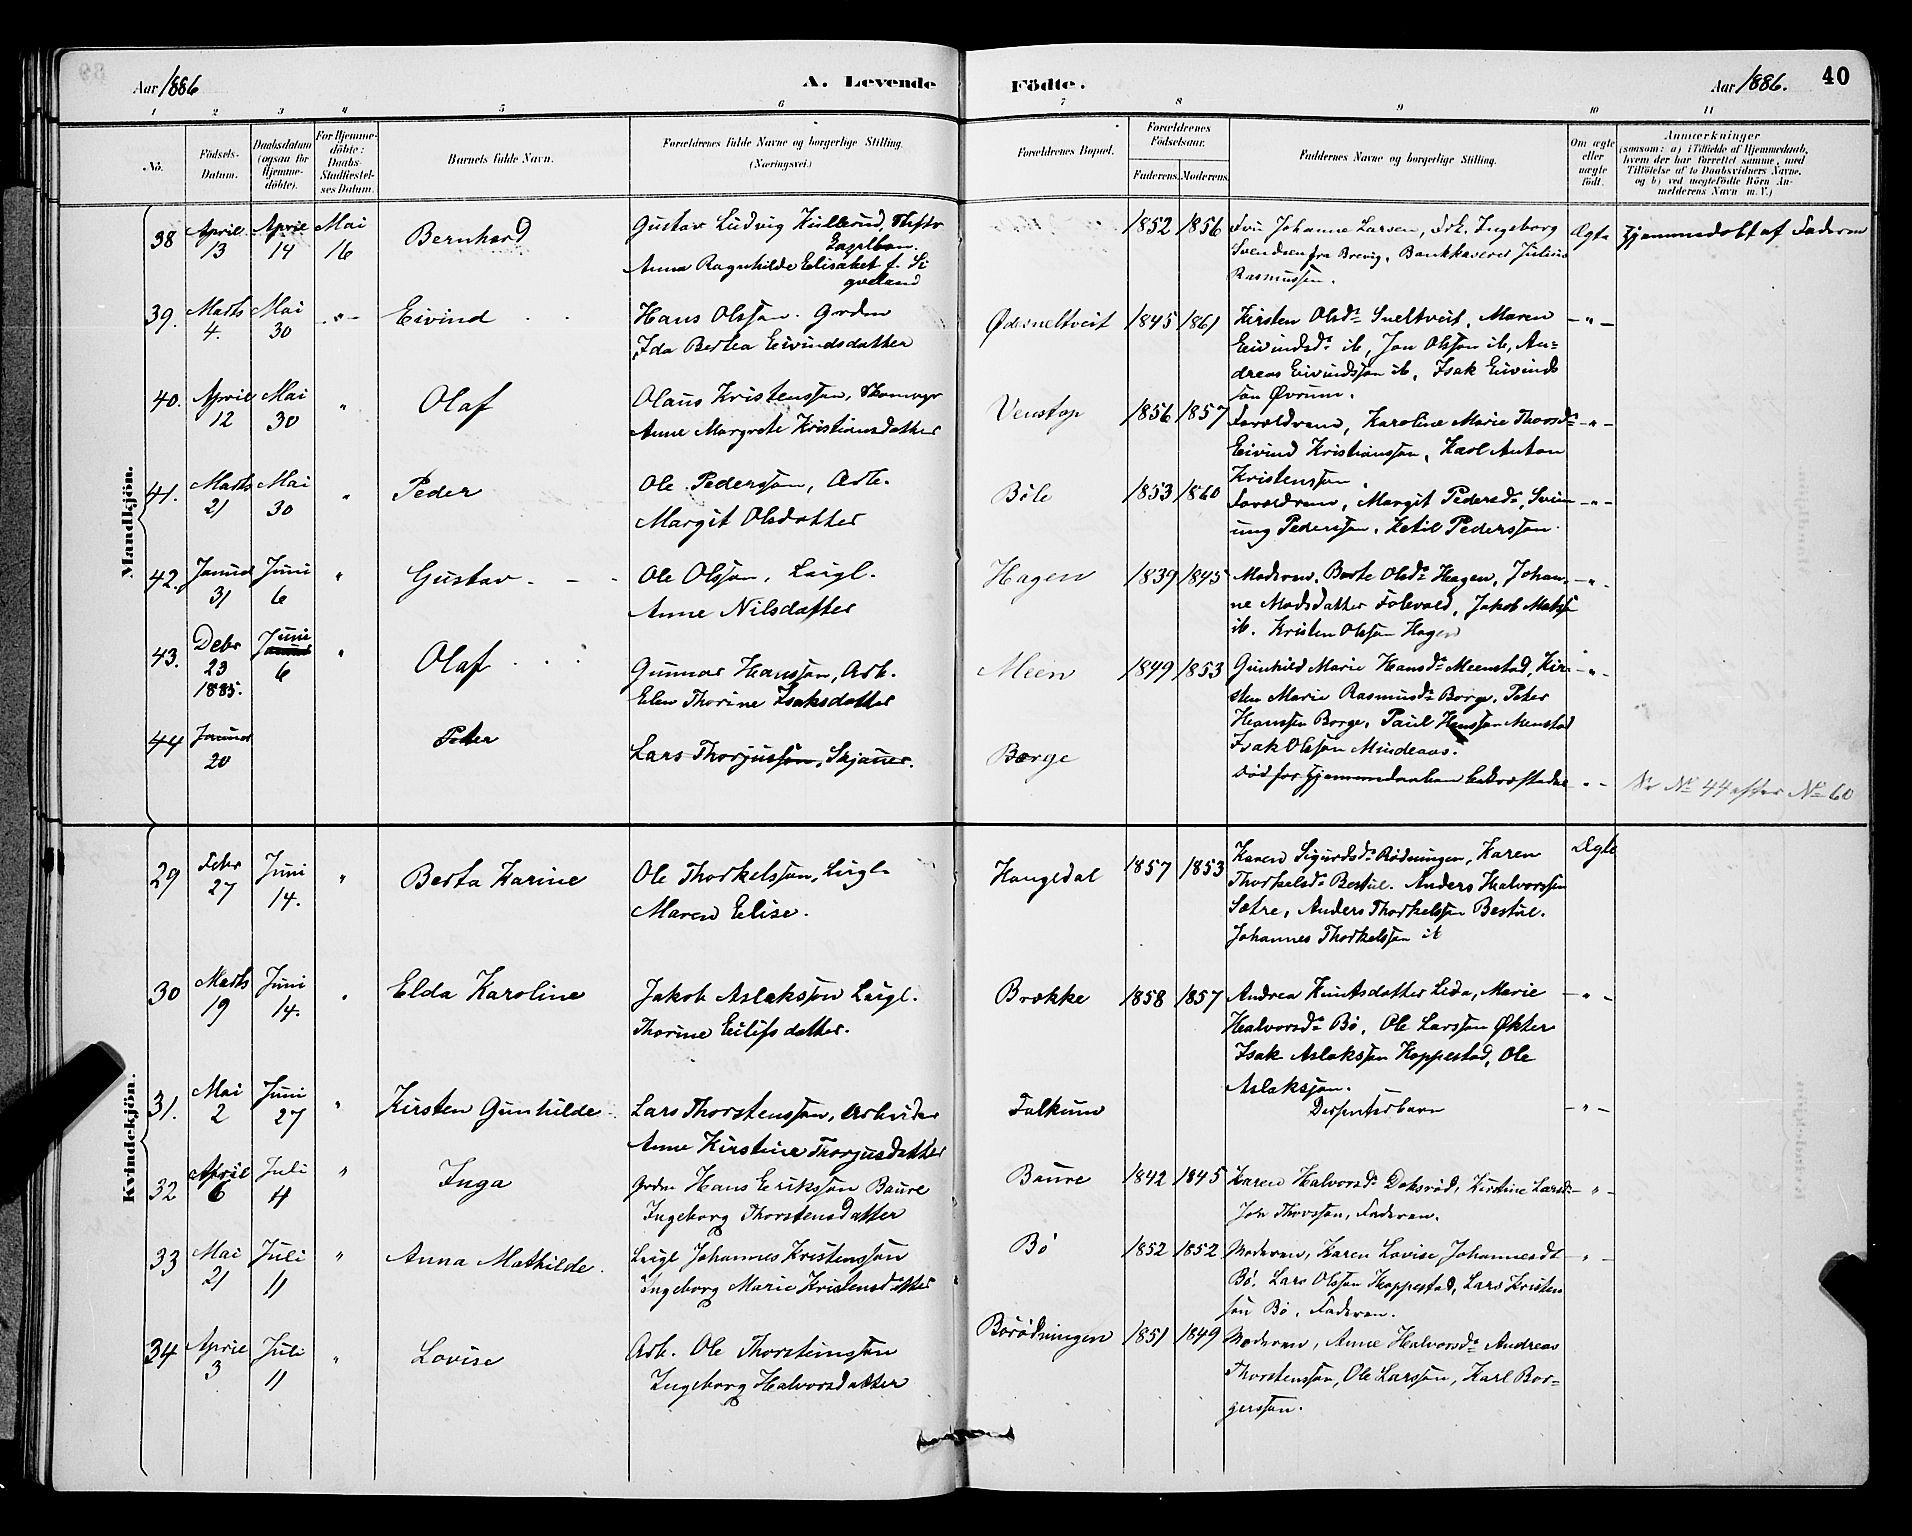 Aar 1886
A. Levende
Födte.
Aar 1886.
40
1 2 3 4 5 6 7 8 9 10 11
No.
Födsels-
Datum.
Daabsdatum
(ogsaa for
Hjemme-
döbte).
For Hjemme-
döbte:
Daabs-
Stadfæstel-
ses Datum.
Barnets fulde Navn.
Forældrenes fulde Navne og borgerlige Stilling.
(Næringsvei.)
Forældrenes Bopæl.
Forældrenes
Födselsaar.
Faderens. Moderens.
Faddernes Navne og borgerlige Stilling.
Om ægte
eller
uægte
födt.
Anmærkninger
(saasom: a) i Tilfælde af Hjemmedaab,
hvem der har forrettet samme, med
Tilföielse af to Daabsvidners Navne,
og b) ved uægtefödte Börn An-
melderens Navn m. V.)
Mandkjön.
38 April 13 April 14 Mai 16 Bernhard
Gustav Ludvig Kullerud,
Anna Ragnhilde Elisabet f.
1852 1856
Fru Johanne Larsen, Frk. Ingeborg
Svendsen fra Brevig, Bankkaserer Julius
Rasmussen.
Ægte
Hjemmedøbt af Faderen
39. Marts 4. Mai 30 -"- Eivind
Hans Olsson. Grdm
Ida Bertea Eivindsdatter
Ødesneltveit 1845 1861
Kirsten Olsdr Sneltveit, Maren
Eivindsdr ib, Jon Olsson ib, An=
dreas Eivindsson ib, Isak Eivinds
son Øvrum.
-"-
40. April 12 Mai 30 " Olaf
Olaus Kristensson,
Anne Margrete Kristiansdatter
Venstop 1856 1857
Forældrene, Karoline Marie Thorsdr
Eivind Kristiansson, Karl Anton
Kristensson.
-"-
41. Marts 21 Mai 30 " Peder
Ole Pedersson, Arb.
Margit Olsdatter
Bøle 1853 1860
Forældrene, Margit Pedersdr, Svein
ung Pedersson, Ketil Pedersson.
-"-
42. Januar 31 Juni 6 " Gustav
Ole Olsson, Leigl.
Anne Nilsdatter
Hagen 1839 1845
Moderen, Berte Olsdr Hagen, Johan
ne Madsdatter Folevald, Jakob
ib. Kristen Olsson Hagen
-"-
43. Debr 23 1885. Juni 6 " Olaf
Gunnar Hansson, Arb.
Elen Thorine Isaksdatter
Meen 1849 1853
Gunhild Marie Hansdr Meenstad, Kir=
sten Marie Rasmusdr Borge, Peter
Hanssen Borge, Paul Hansson Menstad
Isak Olsson
-"-
44 Januar 20 Peter
Lars Thorjusson, Skjauer.
Borge
Død for Hjemmedaaben bekræftedes
-"-
No 44 efter No 60
Kvindekjön.
29 Febr 27 Juni 14. " Berta Karine
Ole Thorkelsson, Leigl.
Maren Elise.
Haugedal 1857 1853
Karen Sigurdsdr Rødningen, Karen
Thorkelsdr Bestul. Anders Halvorssen
Sætre, Anders Thorkelsson Bestul.
Johannes Thorkelsson ib
Ægte
30 Marts 19 Juni 14. " Elda Karoline
Jakob Aslaksson Leigl.
Thorine Eilifsdatter.
Brække 1858 1857
Andrea Knutsdatter Lida, Marie
Halvorsdr Bø, Ole Larsson Økter
Isak Aslaksson Hoppestad, Ole
Aslaksson.
-"-
31. Mai 2 Juni 27 " Kirsten Gunhilde
Lars Thorstensson, Arbeider
Anne Kirstine Thorjusdatter
Falkum
Dissenterbarn
-"-
32 April 6 Juli 4 " Inga
Grdm Hans Eriksson Baure
Ingeborg Thorstensdatter
Baure 1842 1845
Karen Halvorsdr Doksrød, Kirstine Larsdr
Jon Thorsson, Faderen.
-"-
33 Mai 21 Juli 11 " Anna Mathilde.
Leigl Johannes Kristensson
Ingeborg Marie Kristensdatter
Bø 1852 1852
Moderen, Karen Lovise Johannesdr
Bø, Lars Olsson Hoppestad, Lars Kristen
son Bø, Faderen.
-"-
34 April 3 Juli 11 " Lovise
Arb. Ole Thorsteinsson
Ingeborg Halvorsdatter
Børødningen 1851 1849
Moderen, Anne Halvorsdr Andreas
Thorstensson, Ole Larsson, Karl Bor=
gersson.